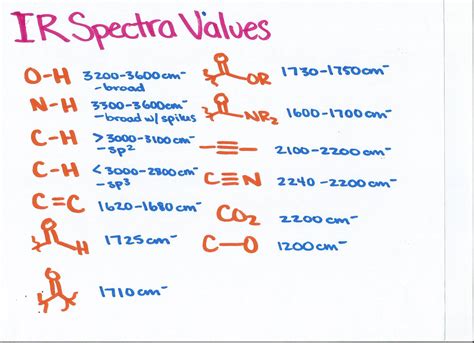 IR Spectra Values
O-H 3200-3600cm⁻
-broad
N-H 3300-3600cm⁻
-broad w/ spikes
C-H >3000-3100cm⁻
-sp²
C-H <3000-2800cm⁻
-sp³
C=C 1620-1680cm⁻
O H 1725cm⁻
O 1710cm⁻
O OR 1730-1750cm⁻
O NR₂ 1600-1700cm⁻
2100-2200cm⁻
C≡N 2240-2200cm⁻
CO₂ 2200cm⁻
C-O 1200cm⁻